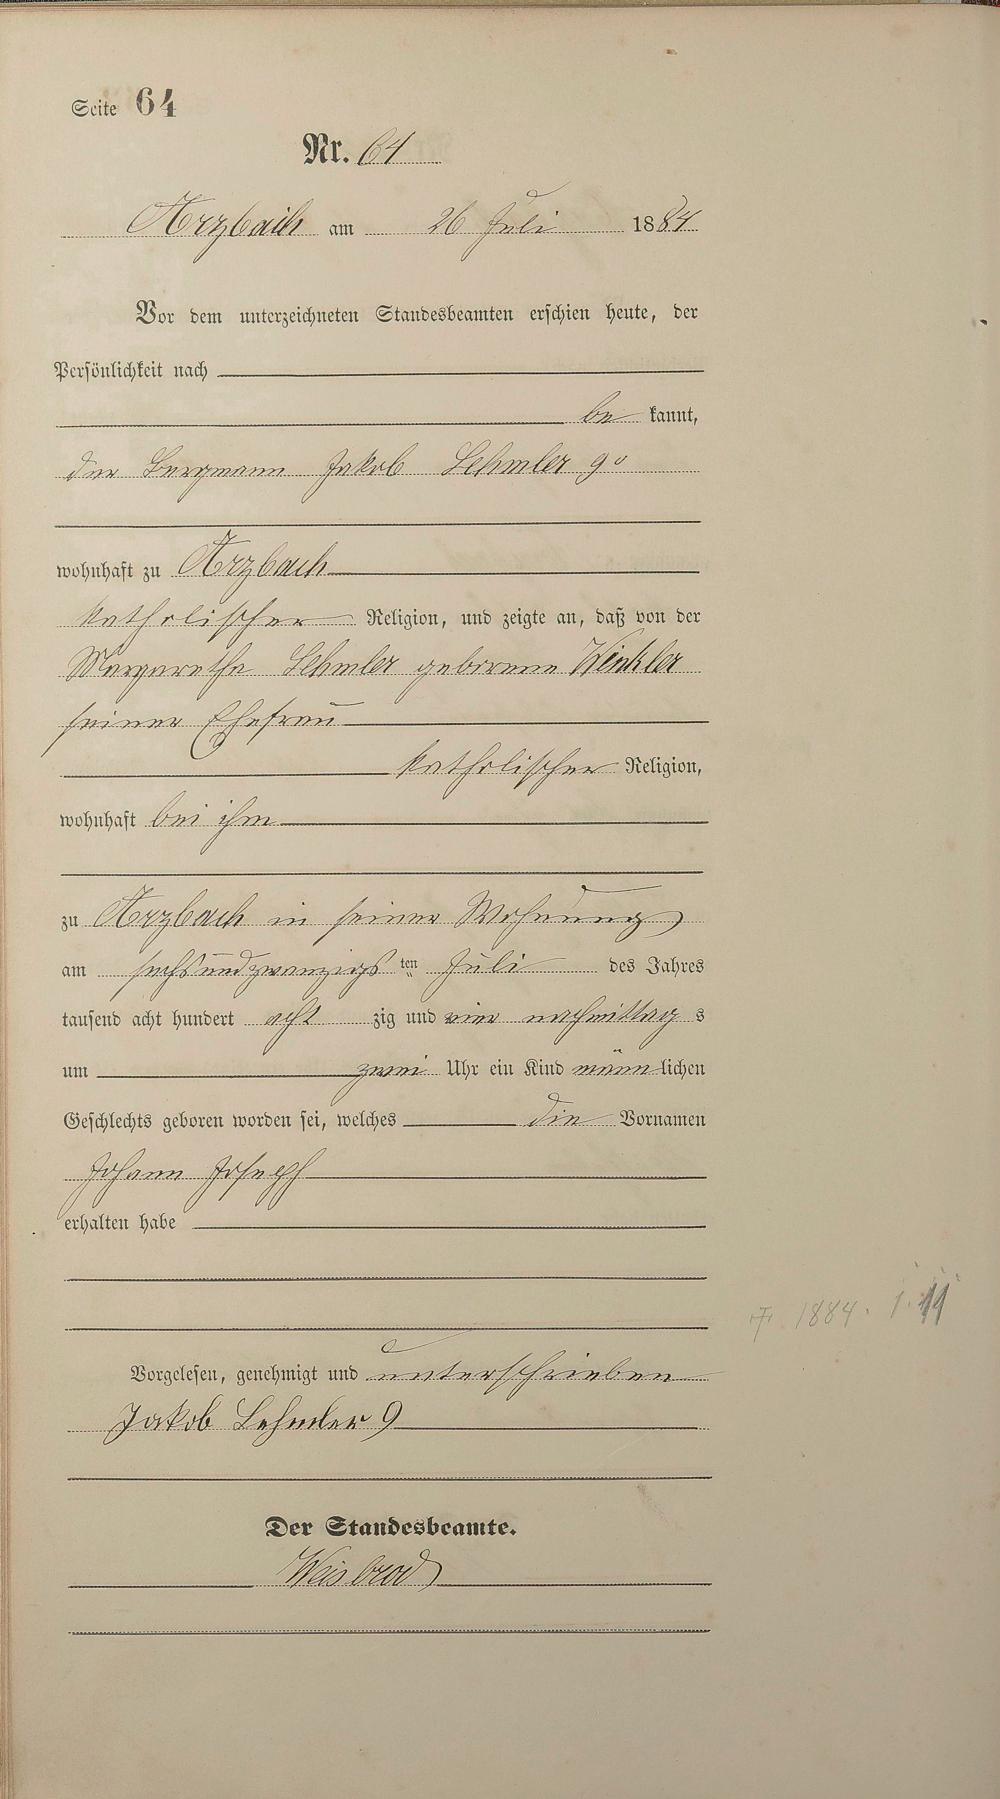 Seite 64
Nr. 64
Arzbach am 26 Juli 1884
Vor dem unterzeichneten Standesbeamten erschien heute, der
Persönlichkeit nach
be kannt,
der Bergmann Jakob Lehmler 9º
wohnhaft zu Arzbach
katholischer Religion, und zeigte an, daß von der
Margarethe Lehmler geborene Winkler
seiner Ehefrau
katholischer Religion,
wohnhaft bei ihm
zu Arzbach in seiner Wohnung
am sechsundzwanzigs ten Juli des Jahres
tausend acht hundert acht zig und vier nachmittag s
um zwei Uhr ein Kind männ lichen
Geschlechts geboren worden sei, welches die Vornamen
Johann Joseph
erhalten habe
† 1884.
Vorgelesen, genehmigt und unterschrieben
Jakob Lehmler 9
Der Standesbeamte.
Weisbrod